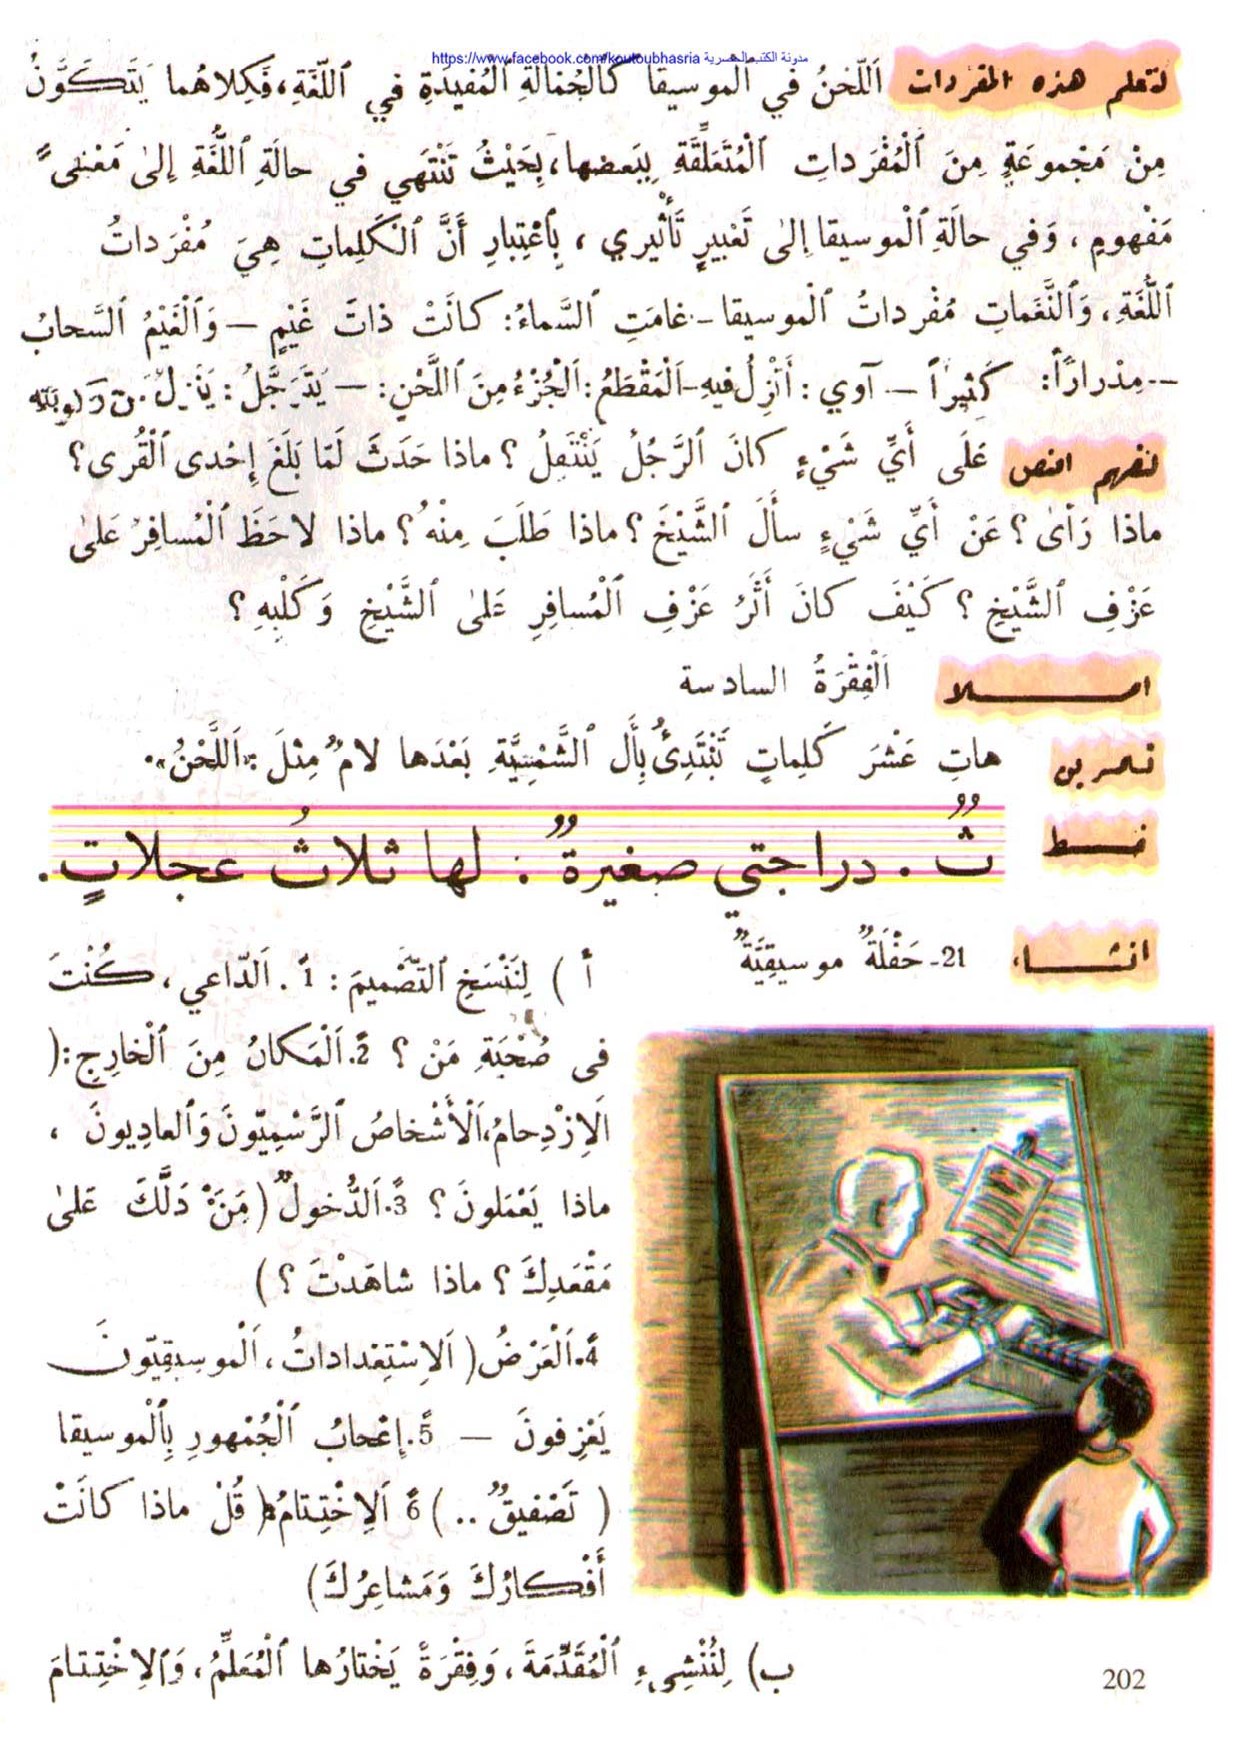 https://www.facebook.com/koutoubhasria مدونة الكتب الحصرية
لنتعلم هذه المفردات اَللَّحْنُ في ٱلْموسيقا كَالْجُمْلَةِ ٱلْمُفيدَةِ في ٱللُّغَةِ، فَكِلاهُما يَتَكَوَّنُ
مِنْ مَجْموعَةٍ مِنَ ٱلْمُفْرَداتِ ٱلْمُتَعَلِّقَةِ بِبَعضِها، بِحَيْثُ تَنْتَهي في حالَةِ ٱللُّغَةِ إِلىٰ مَعْنىً
مَفْهومٍ، وَفي حالَةِ ٱلْموسيقا إِلىٰ تَعْبيرٍ تَأْثيري، بِٱعْتِبارِ أَنَّ ٱلْكَلِماتِ هِيَ مُفْرَداتُ
ٱللُّغَةِ، وَٱلنَّغَماتِ مُفْرداتُ ٱلْموسيقا - غامَتِ ٱلسَّماءُ: كانَتْ ذاتَ غَيْمٍ — وَٱلْغَيْمُ ٱلسَّحابُ
-- مِدْراراً: كَثيراً — آوي: أَنْزِلُ فيهِ - اَلْمَقْطَعُ: اَلْجُزْءُ مِنَ ٱللَّحْنِ: — يَتَرَجَّلُ: يَنْزِلُ
لنفهم النص عَلَى أَيِّ شَيْءٍ كانَ ٱلرَّجُلُ يَنْتَقِلُ؟ ماذا حَدَثَ لَمّا بَلَغَ إِحْدى ٱلْقُرى؟
ماذا رَأىٰ؟ عَنْ أَيِّ شَيْءٍ سأَلَ ٱلشَّيْخَ؟ ماذا طَلَبَ مِنْهُ؟ ماذا لاحَظَ ٱلْمُسافِرُ عَلىٰ
عَزْفِ ٱلشَّيْخِ؟ كَيْفَ كانَ أَثَرُ عَزْفِ ٱلْمُسافِرِ عَلىٰ ٱلشَّيْخِ وَكَلْبِهِ؟
امـلا اَلْفِقْرَةُ السادسة
تمرين هاتِ عَشْرَ كَلِماتٍ تَبْتَدِئُ بِأَل ٱلشَّمْسِيَّةِ بَعْدَها لامٌ مِثْلَ: «اَللَّحْنُ».
خـط ثٌ. دراجتي صغيرةٌ: لها ثلاثُ عجلاتٍ.
انشـاء 21- حَفْلَةٌ موسيقِيَّةٌ
أ) لِنَنْسَخِ ٱلتَّصْميمَ: 1. اَلدّاعي، كُنْتَ
في صُحْبَةِ مَنْ؟ 2. اَلْمَكانُ مِنَ ٱلْخارِجِ: (
اَلاِزْدِحامُ، اَلْأَشْخاصُ ٱلرَّسْمِيّونَ وَٱلعادِيونَ،
ماذا يَعْمَلونَ؟ 3. اَلدُّخولُ (مَنْ دَلَّكَ عَلىٰ
مَقْعَدِكَ؟ ماذا شاهَدْتَ؟)
4. اَلْعَرْضُ (اَلاِسْتِعْداداتُ، اَلْموسيقِيّونَ
يَعْزِفونَ — 5. إِعْجابُ ٱلْجُمْهورِ بِٱلْموسيقا
(تَصْفيقٌ ..) 6 ٱلاِخْتِتامُ (قُلْ ماذا كانَتْ
أَفْكارُكَ وَمَشاعِرُكَ)
ب) لِنُنْشِىءِ ٱلْمُقَدِّمَةَ، وَفِقْرَةً يَخْتارُها ٱلْمُعَلِّمُ، وَٱلاِخْتِتامَ
202